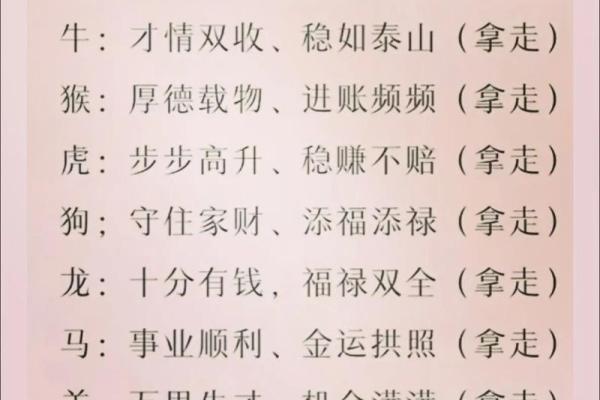 牛：才情双收、稳如泰山（拿走）
猴：厚德载物、进账频频（拿走）
虎：步步高升、稳赚不赔（拿走）
狗；守住家财、添福添禄（拿走）
龙：十分有钱，福禄双全（拿走）
马：事业顺利、金运拱照（拿走）